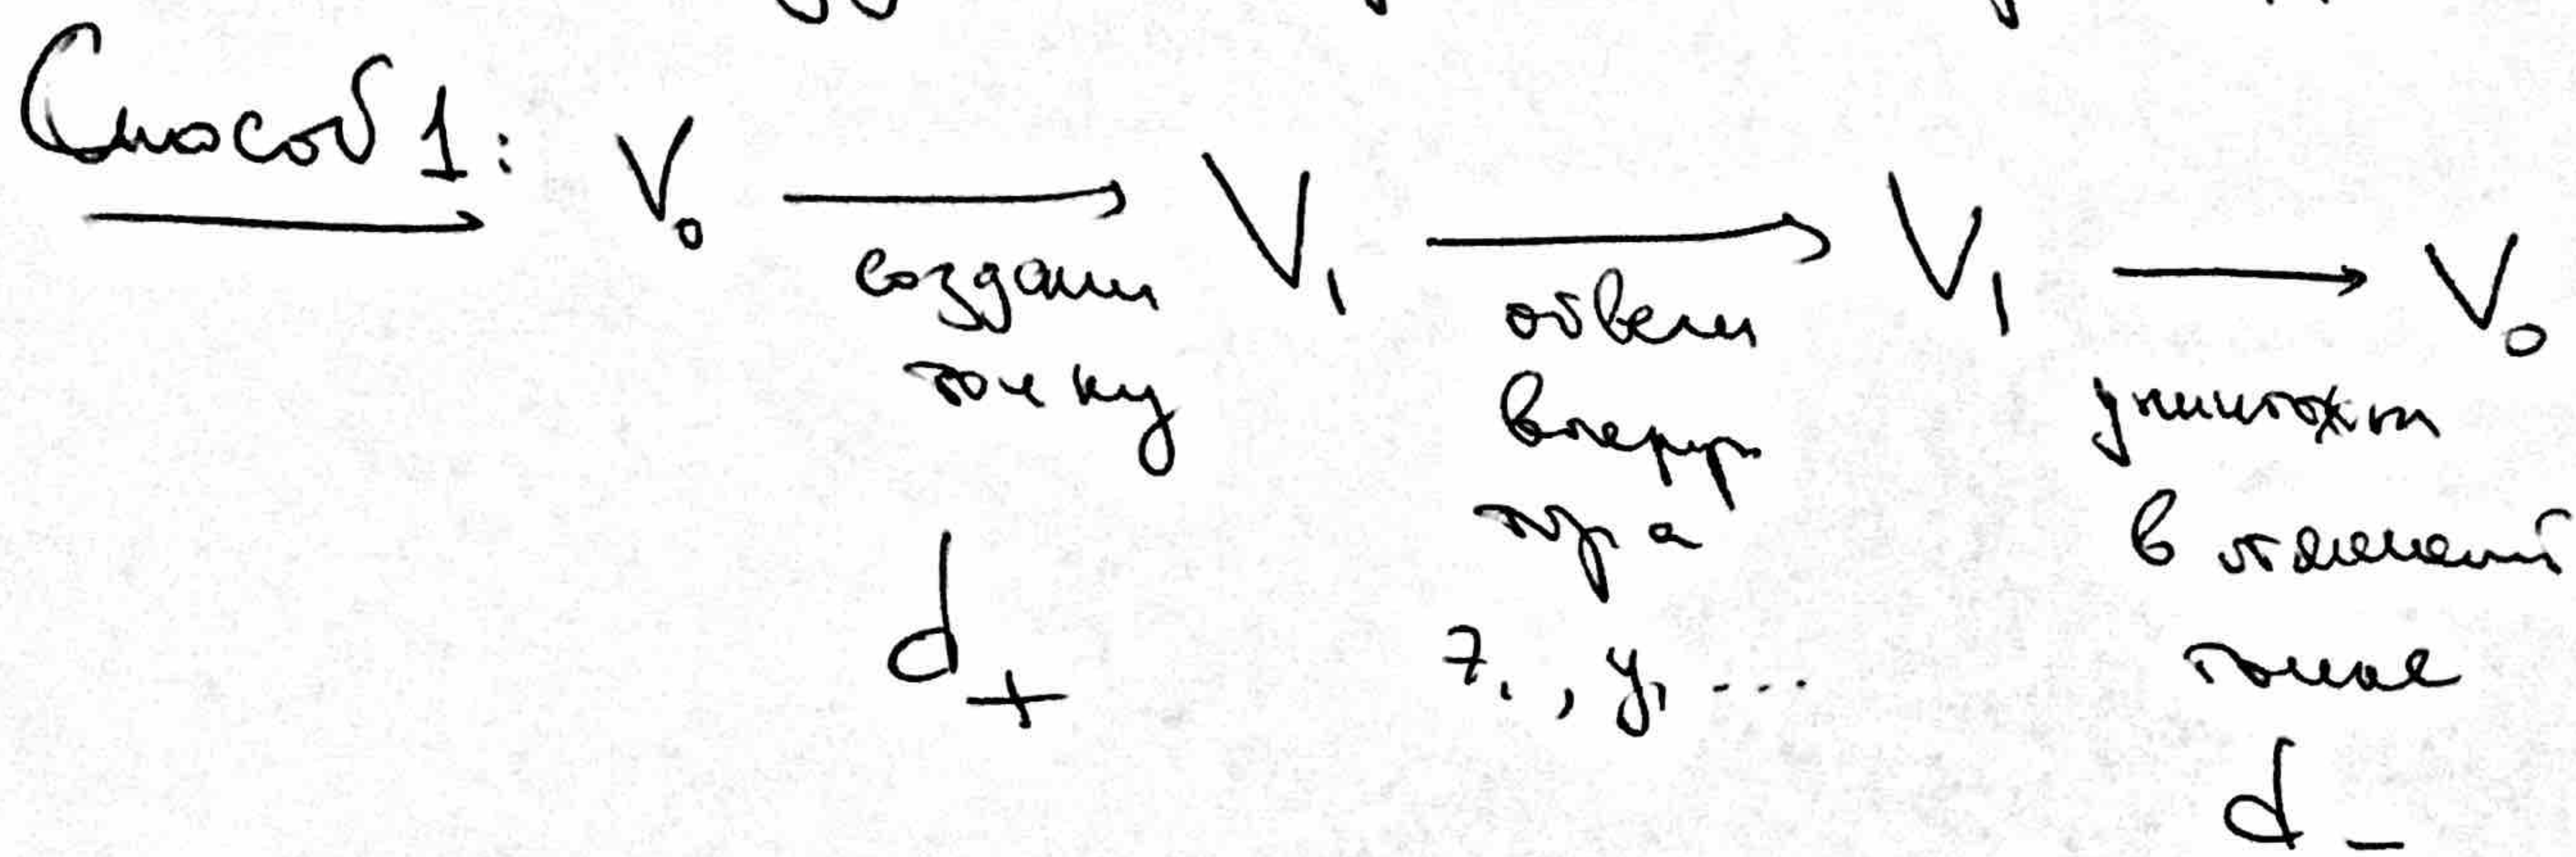 Способ 1: V₀ → V₁ → V₁ → V₀
создали
точку
d₊
обвели
вокруг
тора
z₁, y₁ ...
уничтожили
в
точке
d₋